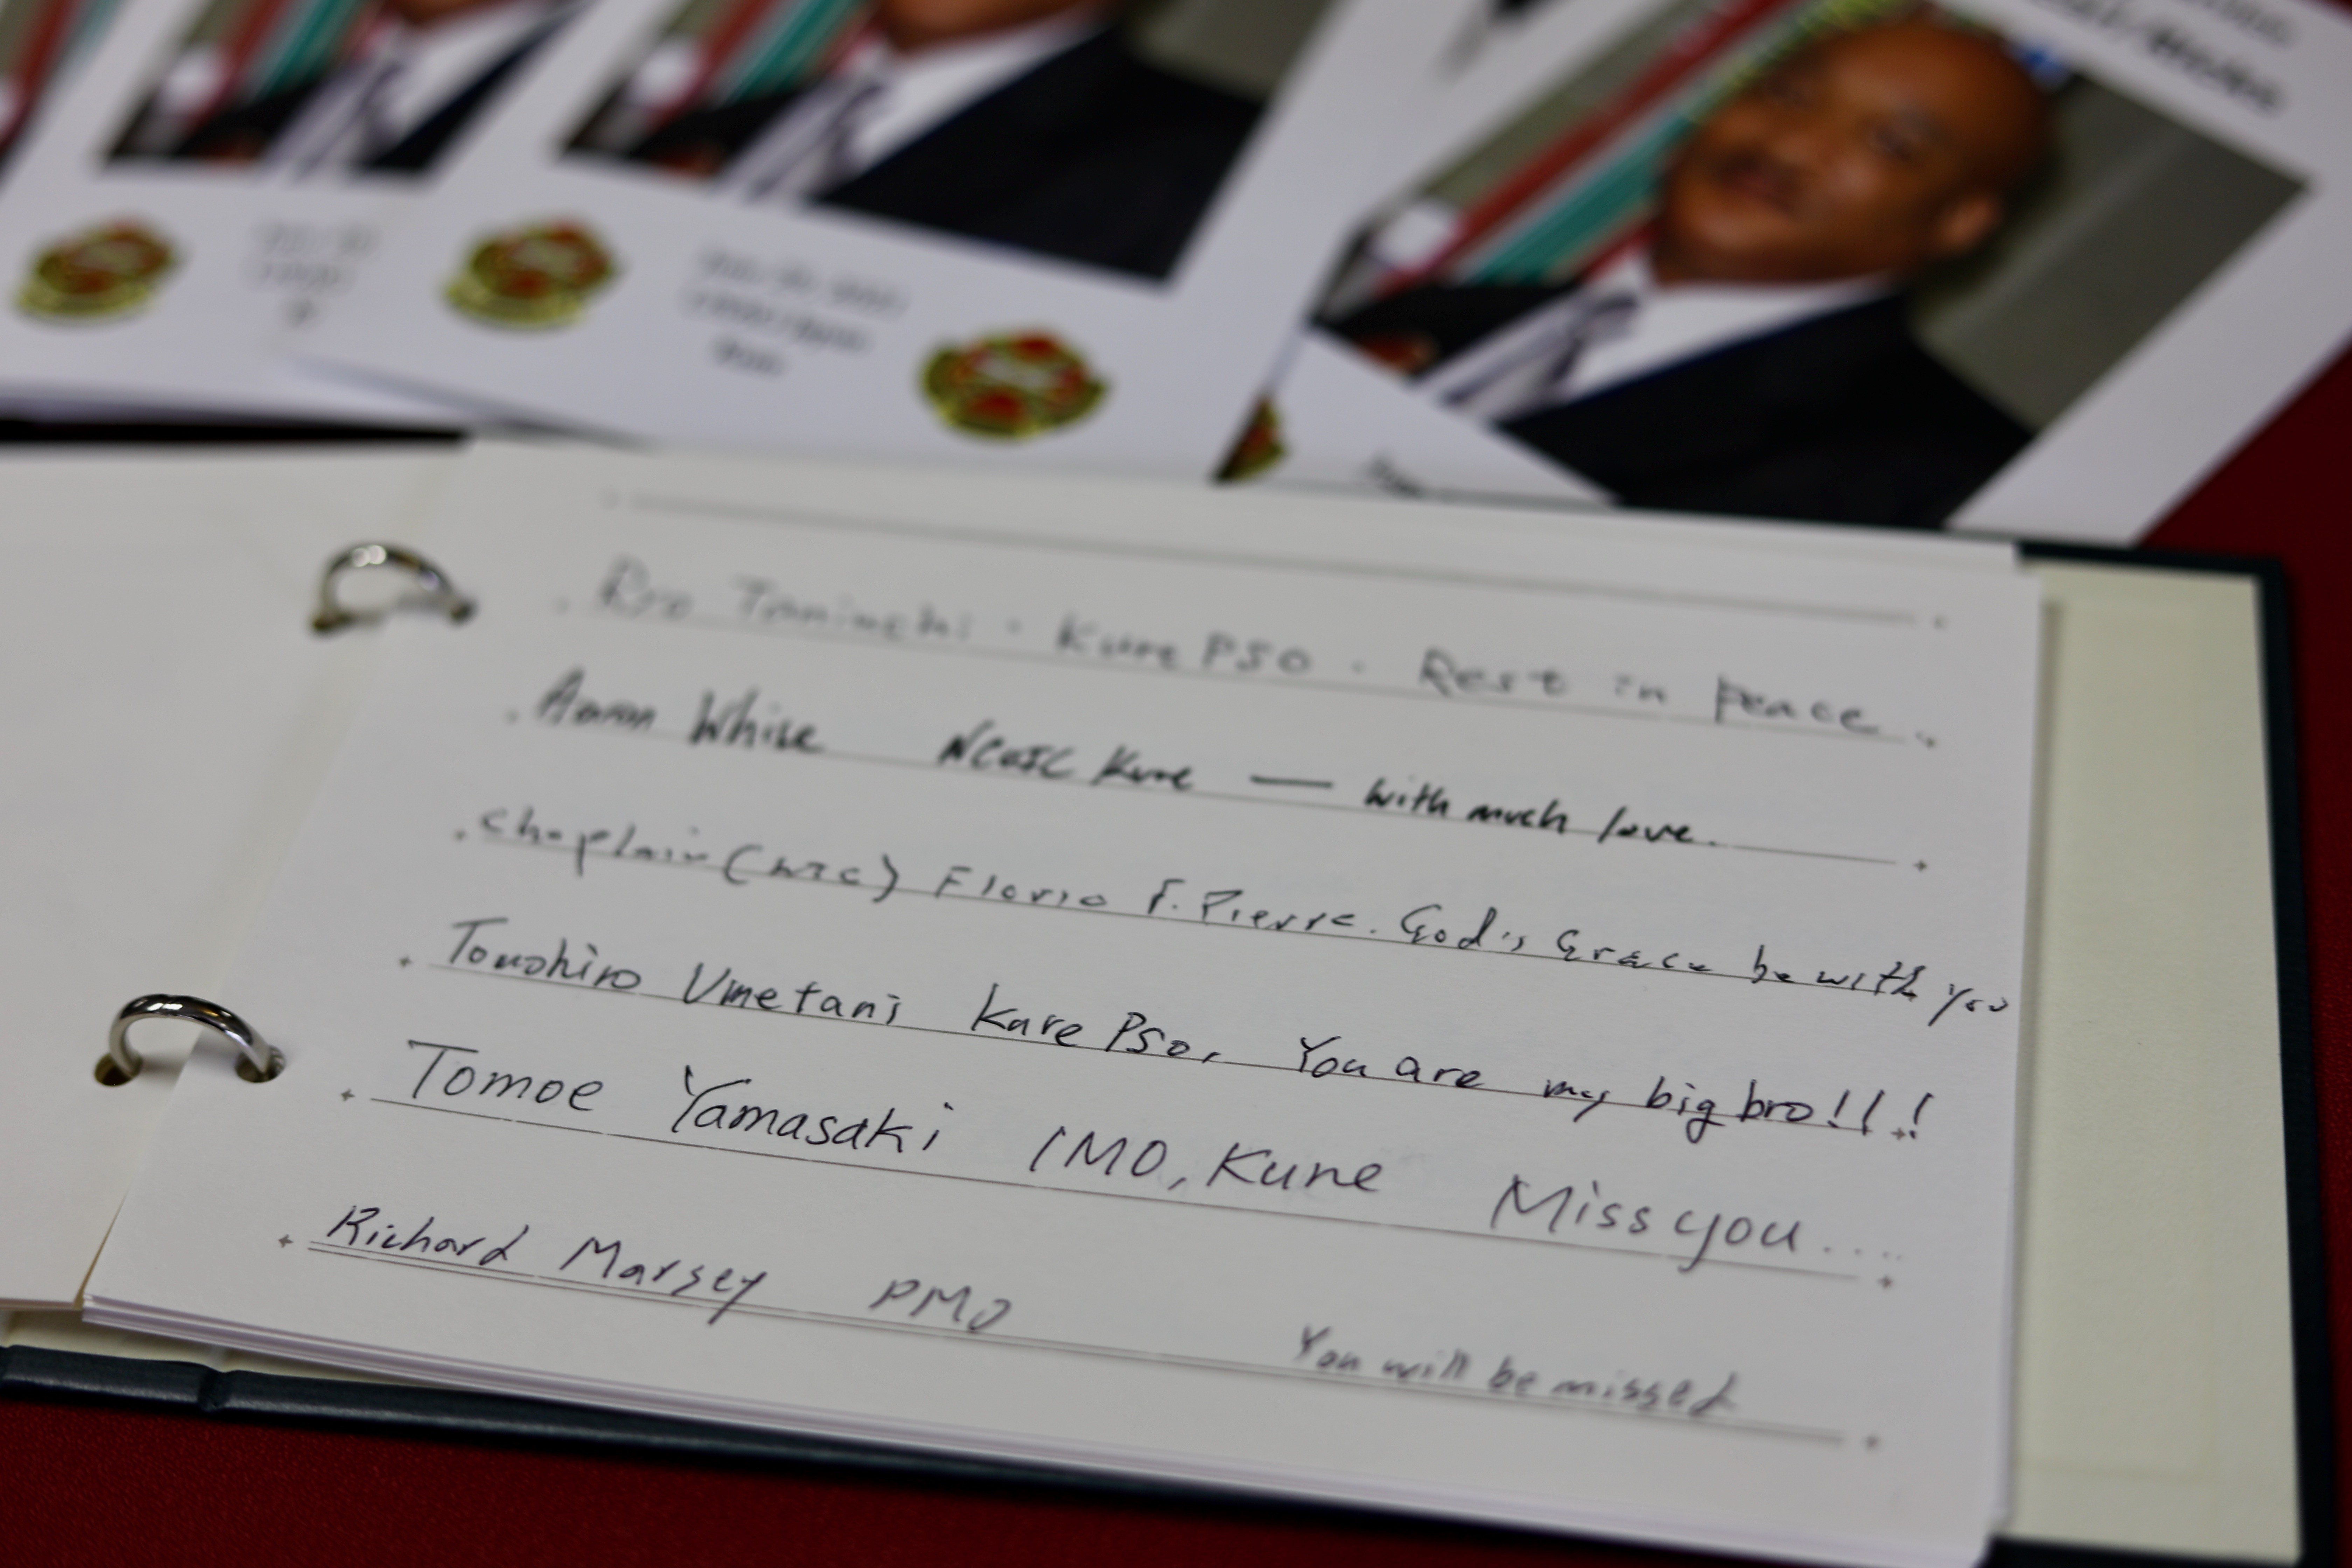 Ryo Taniuchi · Kure PSO · Rest in Peace.
Aaron White NCOIC Kure — with much love.
Chaplain (LTC) Florio F. Pierre. God's Grace be with you
Tomohiro Umetani Kure PSO, You are my big bro!!!
Tomoe Yamasaki IMO, Kure Miss you....
Richard Marsey PMO You will be missed